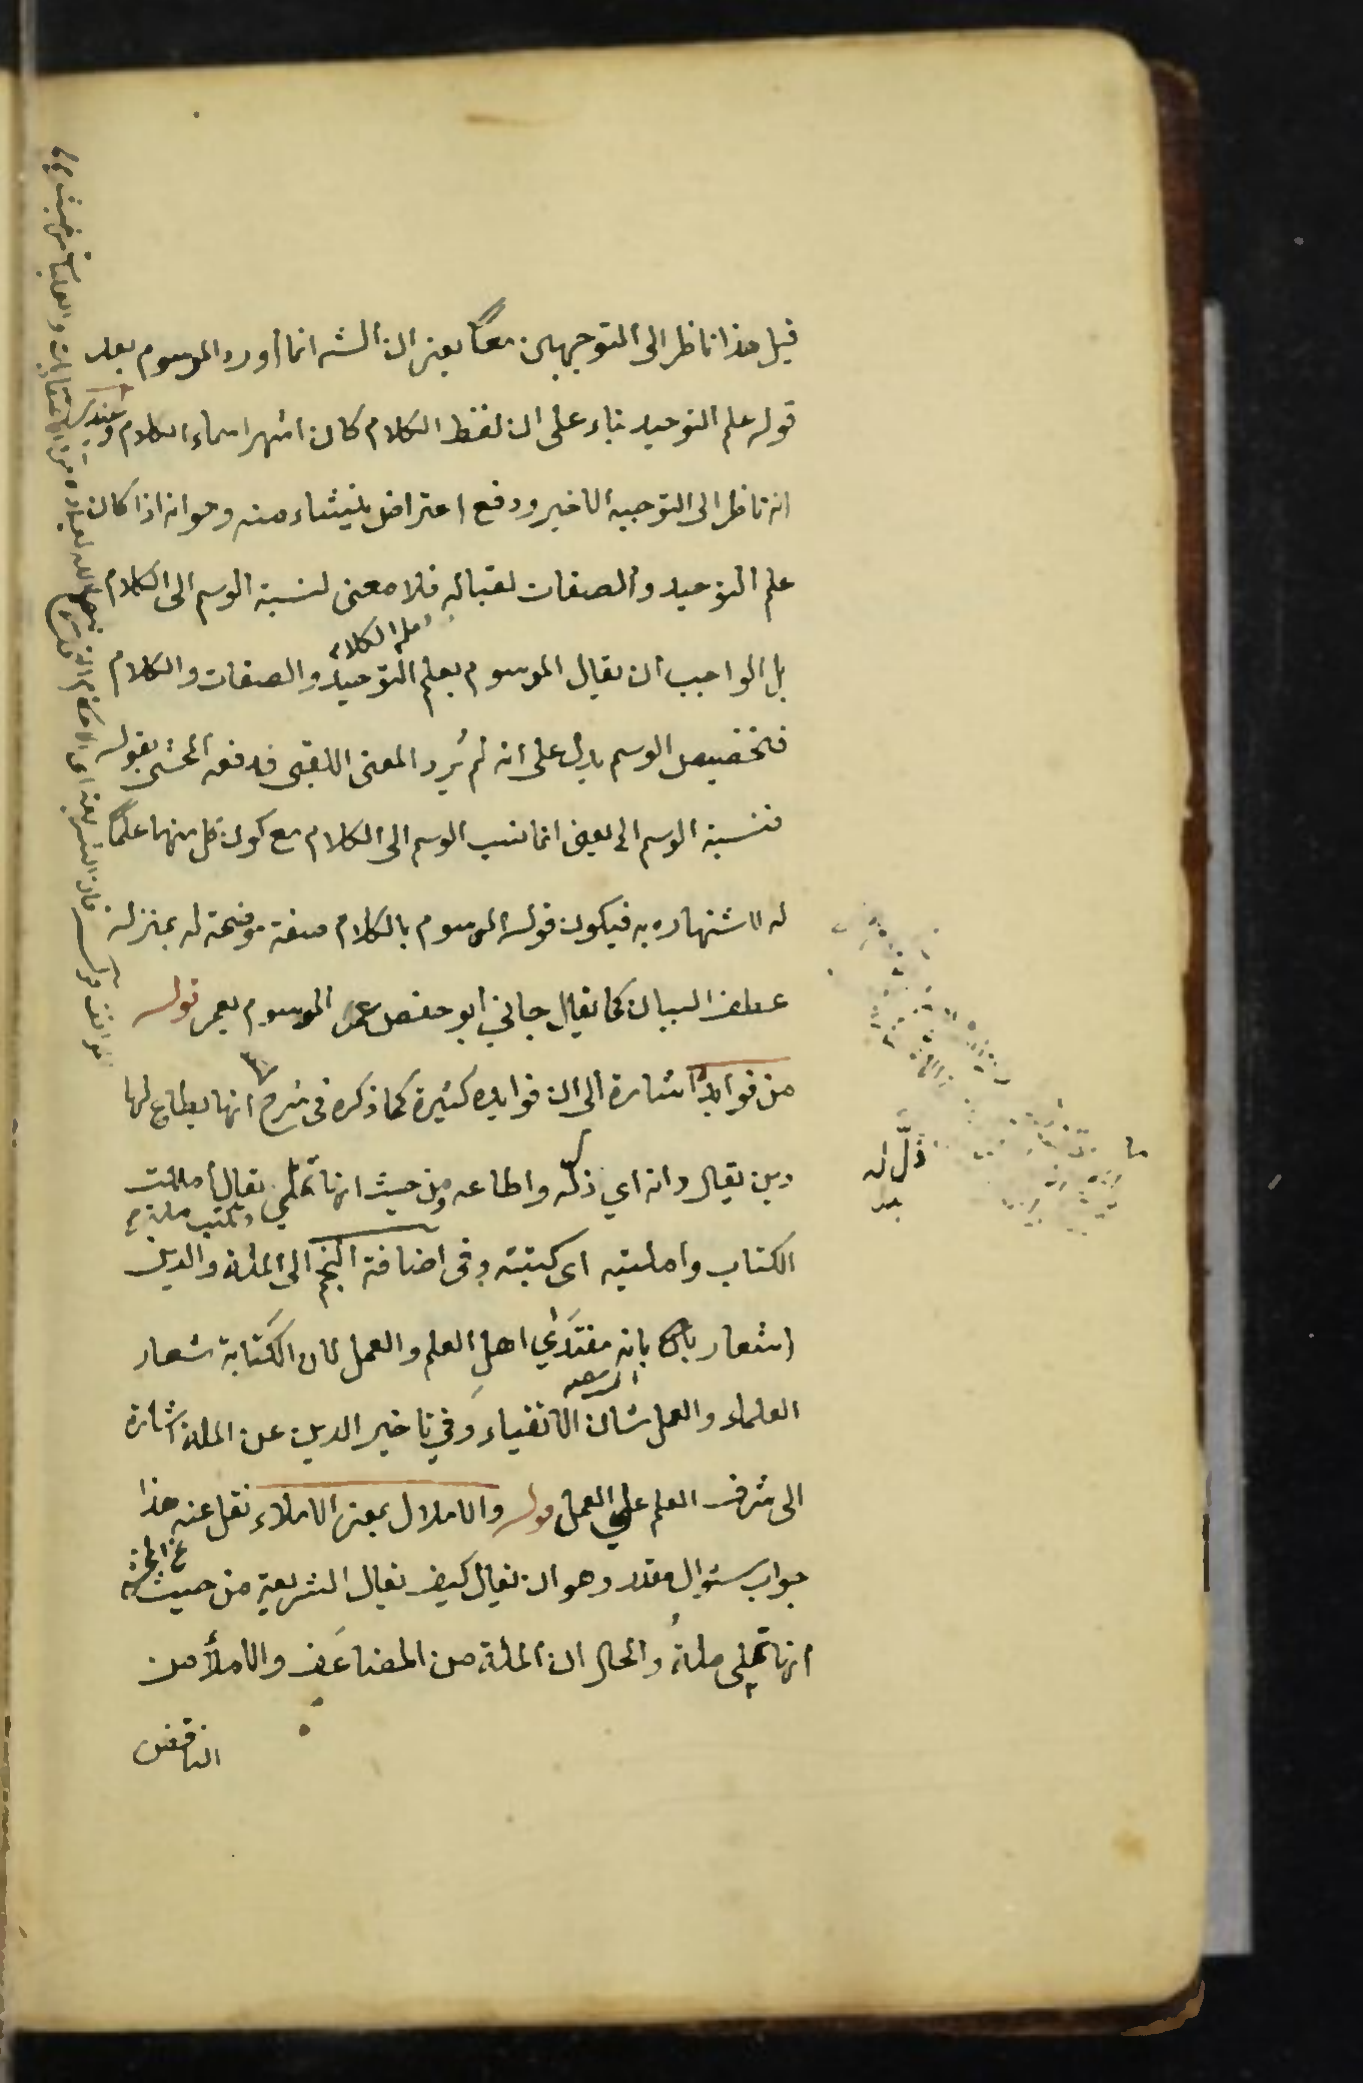 قيل هذا ناظر الى التوجيهين معًا يعنى ان الشه انما أورد الموسوم بعد
قوله علم التوحيد بناء على ان لفظ الكلام كان اشهر اسماء الكلام وعندى
انه ناظر الى التوجيه الاخير ودفع اعتراض ينشاء منه وهو انه اذا كان
علم التوحيد والصفات لقبا له فلا معنى لنسبة الوسم الى الكلام
بل الواجب ان يقال الموسوم بعلم التوحيد والصفات والكلام
فتخصيص الوسم يدل على انه لم يُرد المعنى اللقبى فدفعه المحشى بقوله
فنسبة الوسم الى يعنى انما نسب الوسم الى الكلام مع كون كل منهما علمًا
له لاشتهاره به فيكون قوله الموسوم بالكلام صفة موضحة له بمنزلة
عطف البيان كما يقال جاني أبو حفص عمر الموسوم بعمر قوله
من فوايد اشارة الى ان فوايده كثيرة كما ذكره فى شرح انها يطاع لها
دين يقال دانه اي ذلّ له واطاعه ومن حيث انها تملي يقال أمللت
الكتاب وامليته اى كتبته وفى اضافة النجم الى الملة والدين
اشعار بانه مقتدَي اهلِ العلم والعمل لان الكتابة شعار
العلماء والعمل شان الاتقياء وفي تاخير الدين عن الملة اشارة
الى شرف العلم على العمل قوله والاملال بمعنى الاملاء نقل عنه هذا
جواب سئوال مقدر وهو ان يقال كيف يقال الشريعة من حيث
انها تملى ملةٌ والحال ان الملة من المضاعَف والاملأ من
الناقص
ذلَّ له